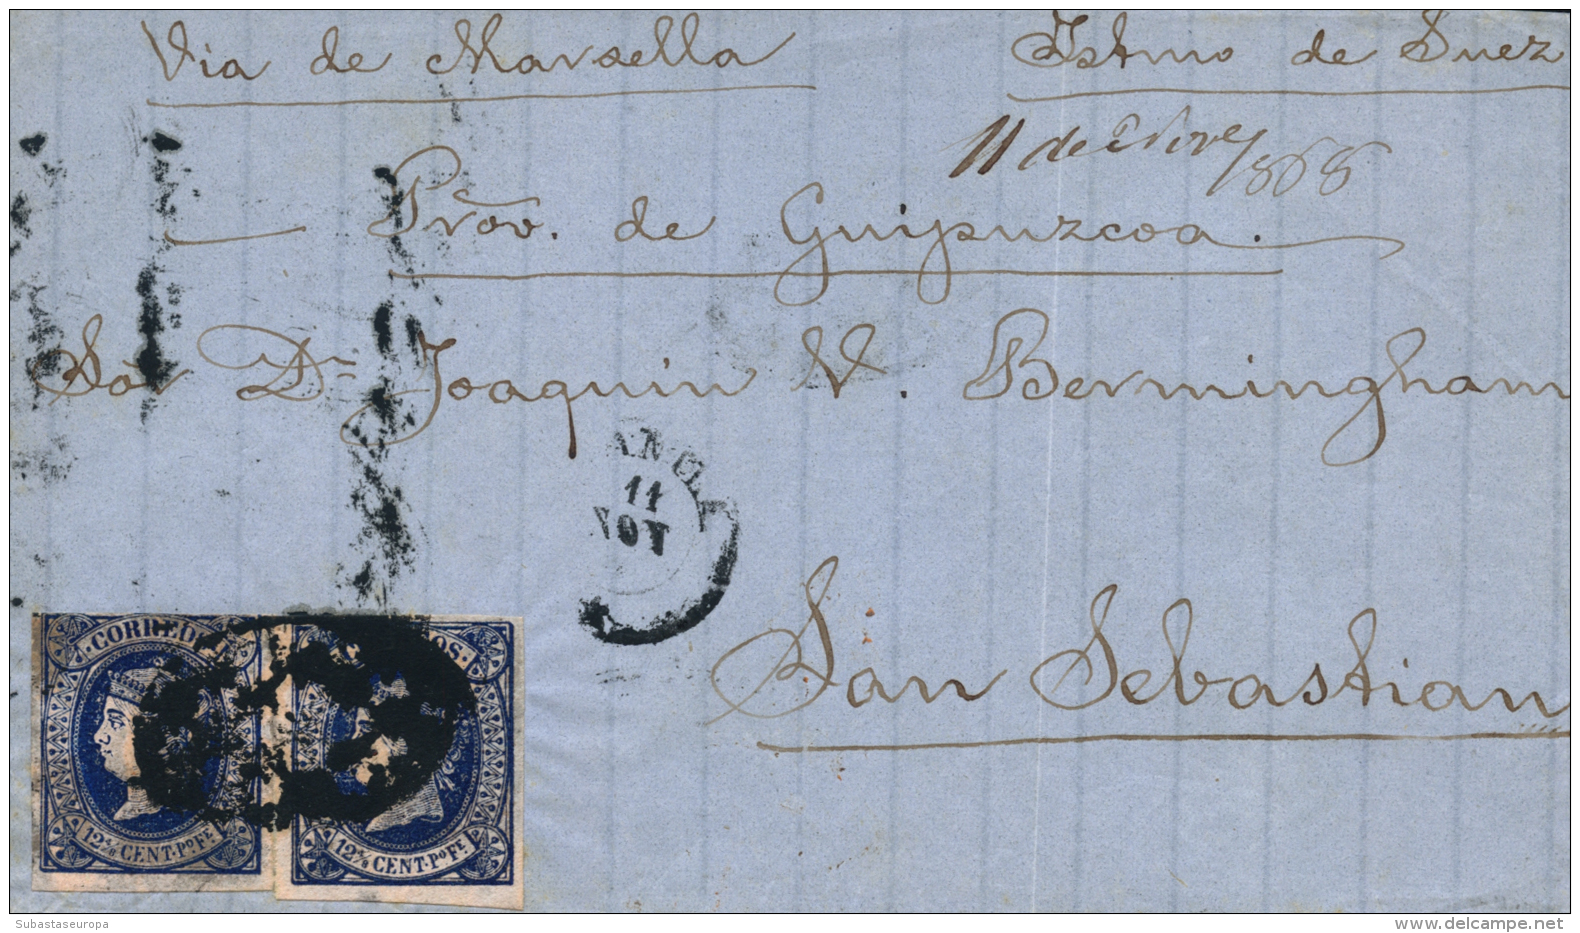 Via de Marsella Istmo de Suez
11 de Nbre/868
Prov. de Guipuzcoa.
Sor Dn Joaquin V. Bermingham
11
NOV
San Sebastian
CORREOS
12 4/8 CENT. Po Fe.
12 4/8 CENT. Po Fe.
Subastaseuropa
www.delcampe.net